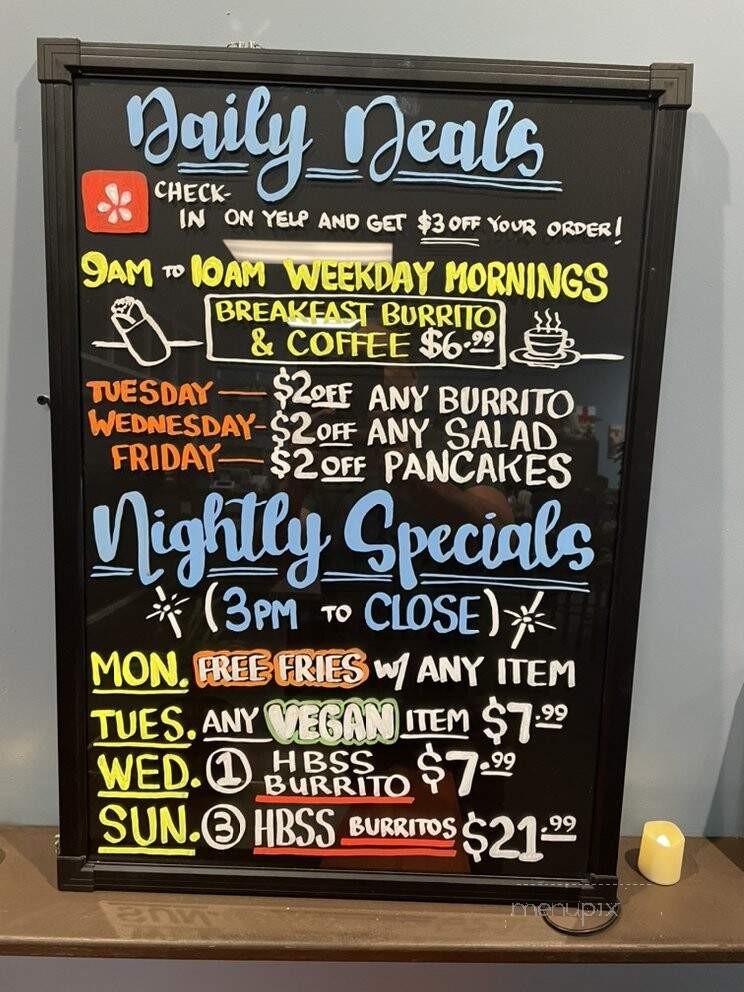 Daily Deals
CHECK-
IN ON YELP AND GET $3 OFF YOUR ORDER!
9AM TO 10AM WEEKDAY MORNINGS
BREAKFAST BURRITO
& COFFEE $6.99
TUESDAY — $2 OFF ANY BURRITO
WEDNESDAY - $2 OFF ANY SALAD
FRIDAY — $2 OFF PANCAKES
Nightly Specials
(3PM TO CLOSE)
MON. FREE FRIES W/ ANY ITEM
TUES. ANY VEGAN ITEM $7.99
WED. 1 HBSS BURRITO $7.99
SUN. 3 HBSS BURRITOS $21.99
menupix